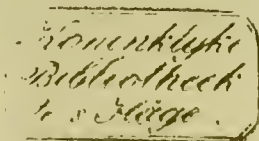 Koninklijke
Bibliotheek
's Hage.